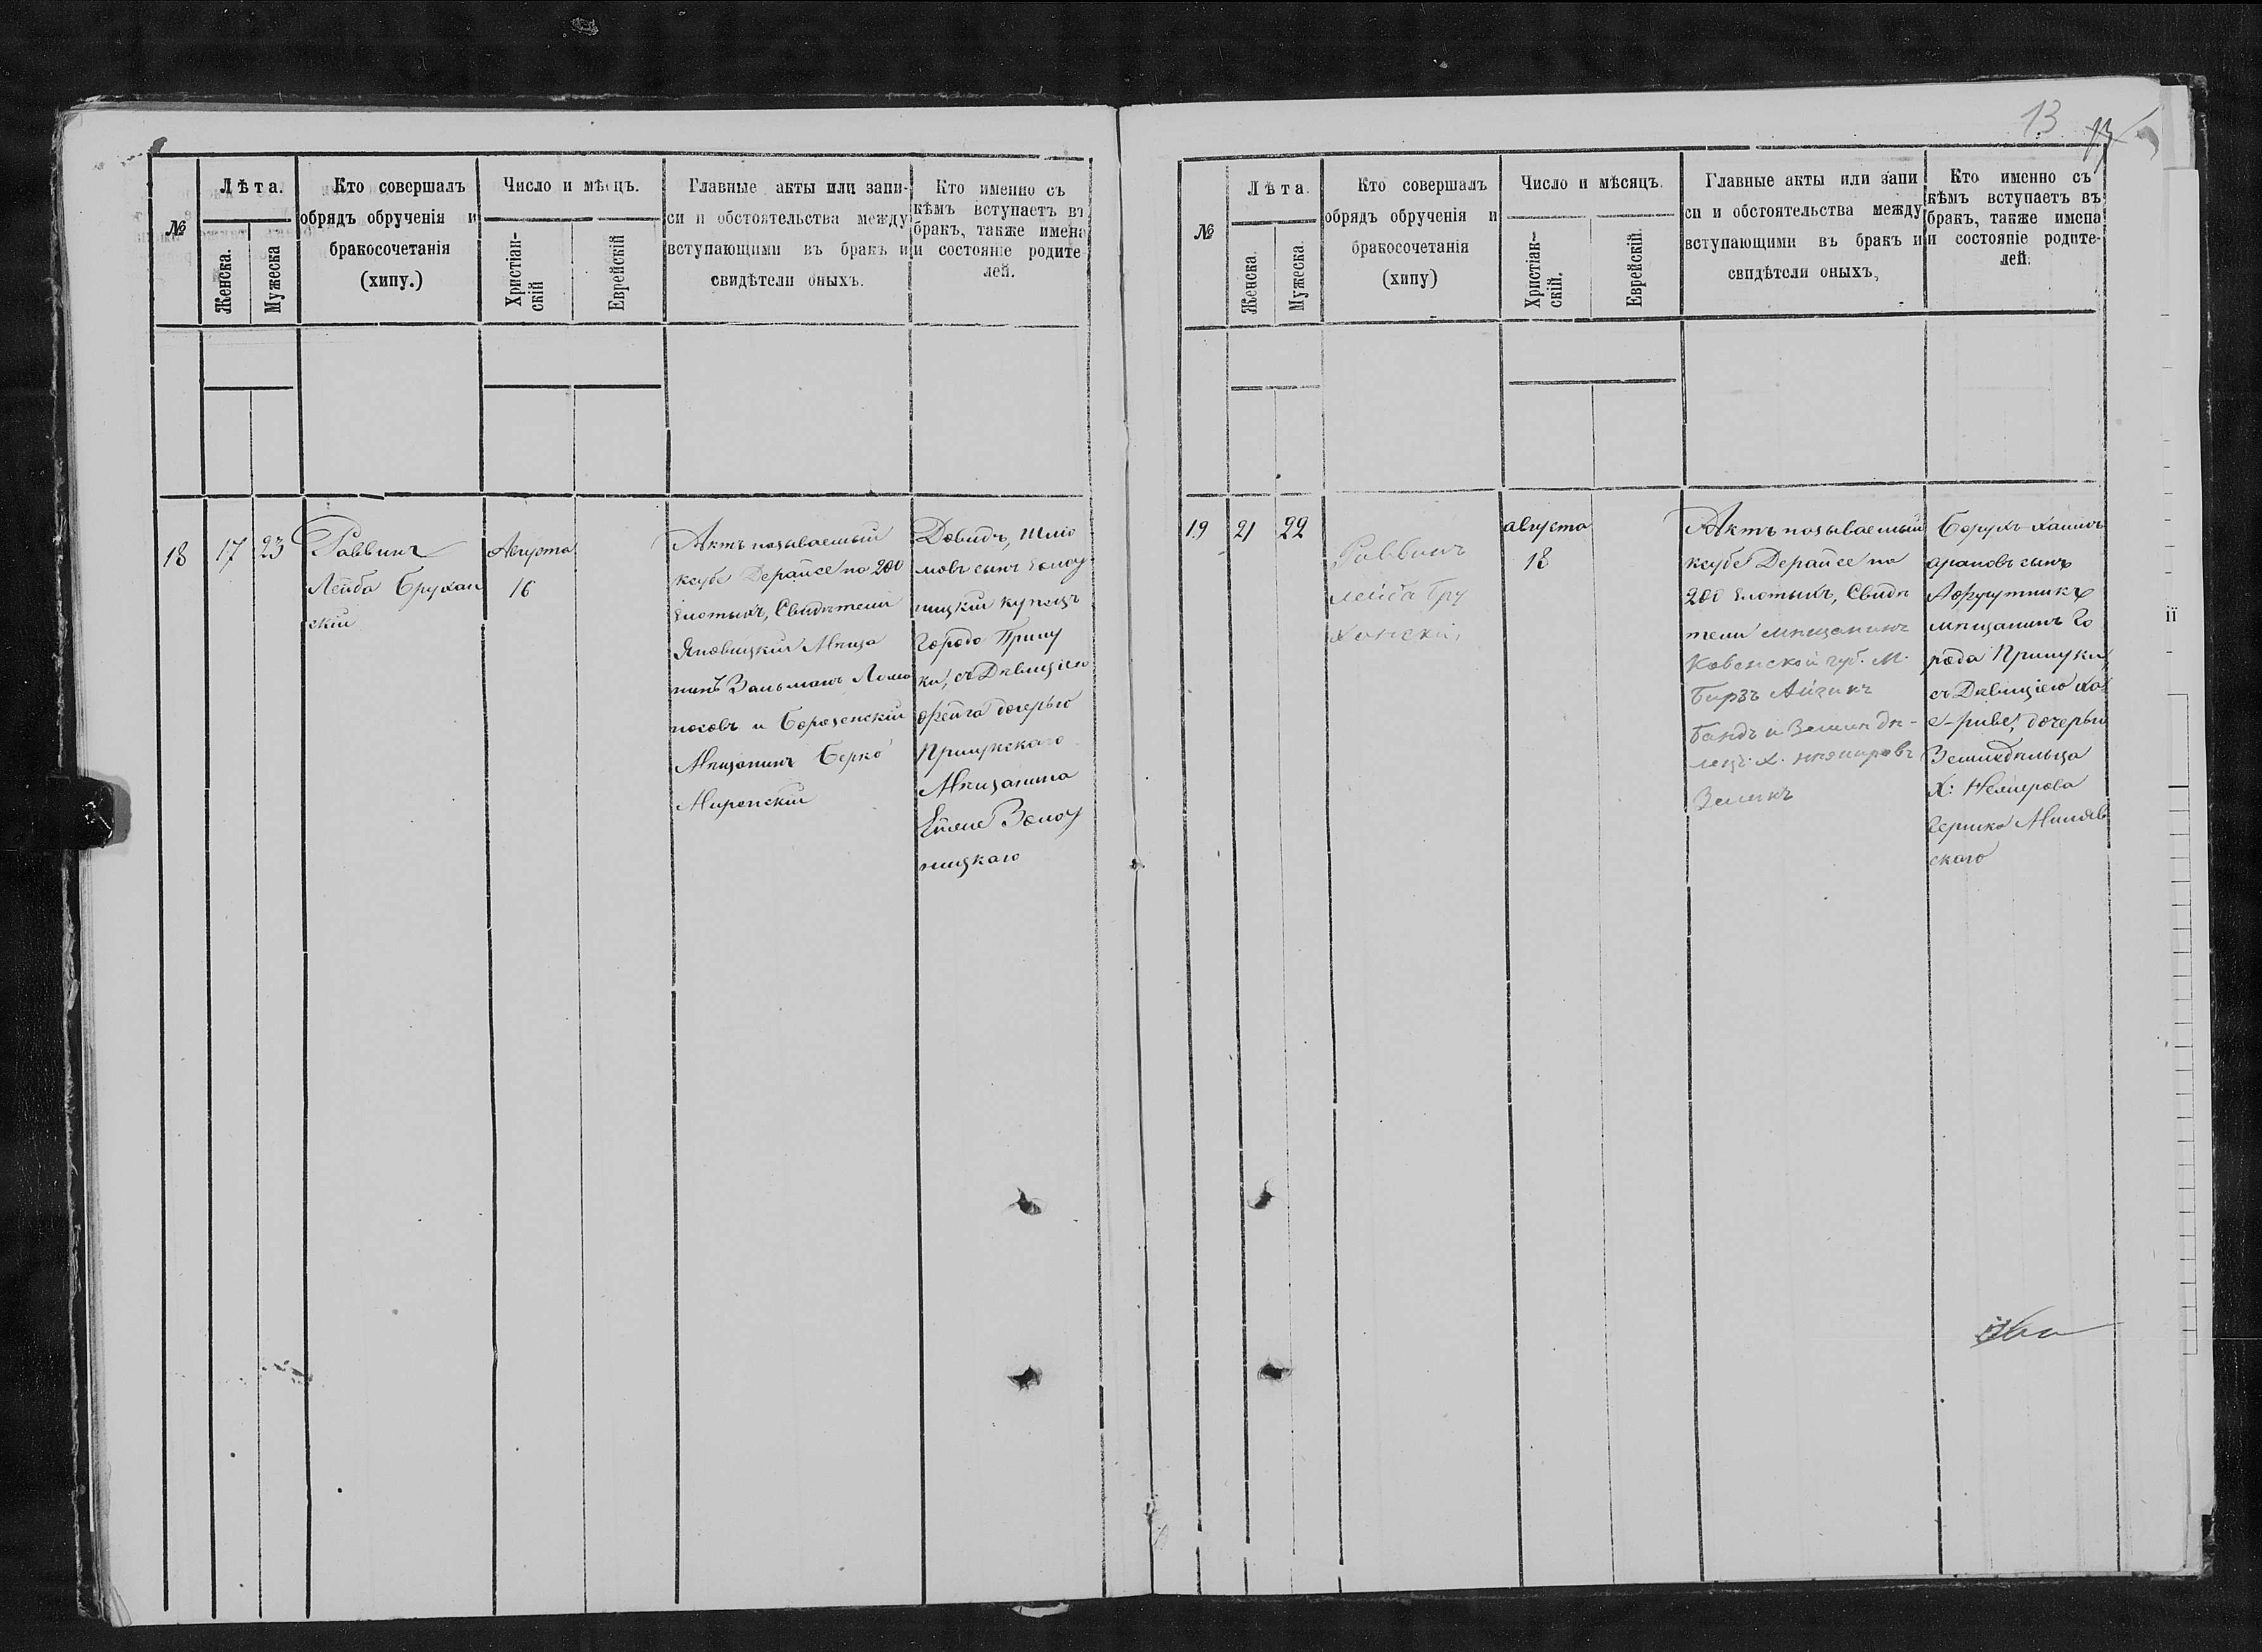 13
№
Лѣта.
Женска.
Мужеска
Кто совершалъ
обрядъ обрученія и
бракосочетанія
(хипу.)
Число и мѣсцъ.
Христіан-
скій
Еврейскій
Главные акты или запи-
си и обстоятельства между
вступающими въ бракъ и
свидѣтели оныхъ.
Кто именно съ
кѣмъ вступаетъ въ
бракъ, также имена
и состояніе родите-
лей.
18
17
23
Раввинъ
Лейба Брухан
скій
Августа
16
Актъ называемый
ксубе Дерайсе на 200
злотыхъ, Свидѣтели
Яновицкій Мѣща
нинъ Зальманъ Ломо
носовъ и Борзенскій
Мѣщанинъ Берко
Миренскій
Довидъ, Шліо
мовъ сынъ
ницкій купецъ
города Прилу
ки, съ Дѣвицею
фейга дочерью
Прилукскаго
Мѣщанина

ницкаго
№
Лѣта.
Женска.
Мужеска.
Кто совершалъ
обрядъ обрученія и
бракосочетанія
(хипу)
Число и мѣсяцъ.
Христіан-
скій.
Еврейскій.
Главные акты или запи
си и обстоятельства между
вступающими въ бракъ и
свидѣтели оныхъ,
Кто именно съ
кѣмъ вступаетъ въ
бракъ, также имена
и состояніе родите-
лей.
19
21
22
Раввинъ
лейба Бру
ханскій,
августа
18
Актъ называемый
ксубе Дерайсе на
200 злотыхъ, Свидѣ
тели мѣщанинъ
Ковенской губ. М.
Биржъ Айзикъ
Бандъ и Земледѣ-
лецъ х.
Зеликъ
Борухъ Хаимъ
ароновъ сынъ
мѣщанинъ го
рода Прилуки,
съ Дѣвицею Ха
е-риве, дочерью
Земледѣльца
Х:
скаго